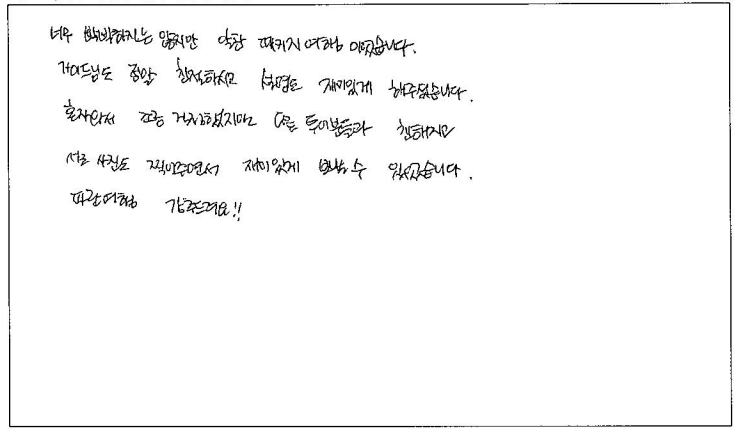 너무 빡빡하지는 않지만 알찬 패키지여행 이었습니다.
가이드님도 정말 친절하시고 설명도 재미있게 해주셨습니다.
혼자와서 조금 걱정했지만 다른 투어분들과 친해지고
서로 사진도 찍어주면서 재미있게 보낼 수 있었습니다.
파란여행 감사드려요!!